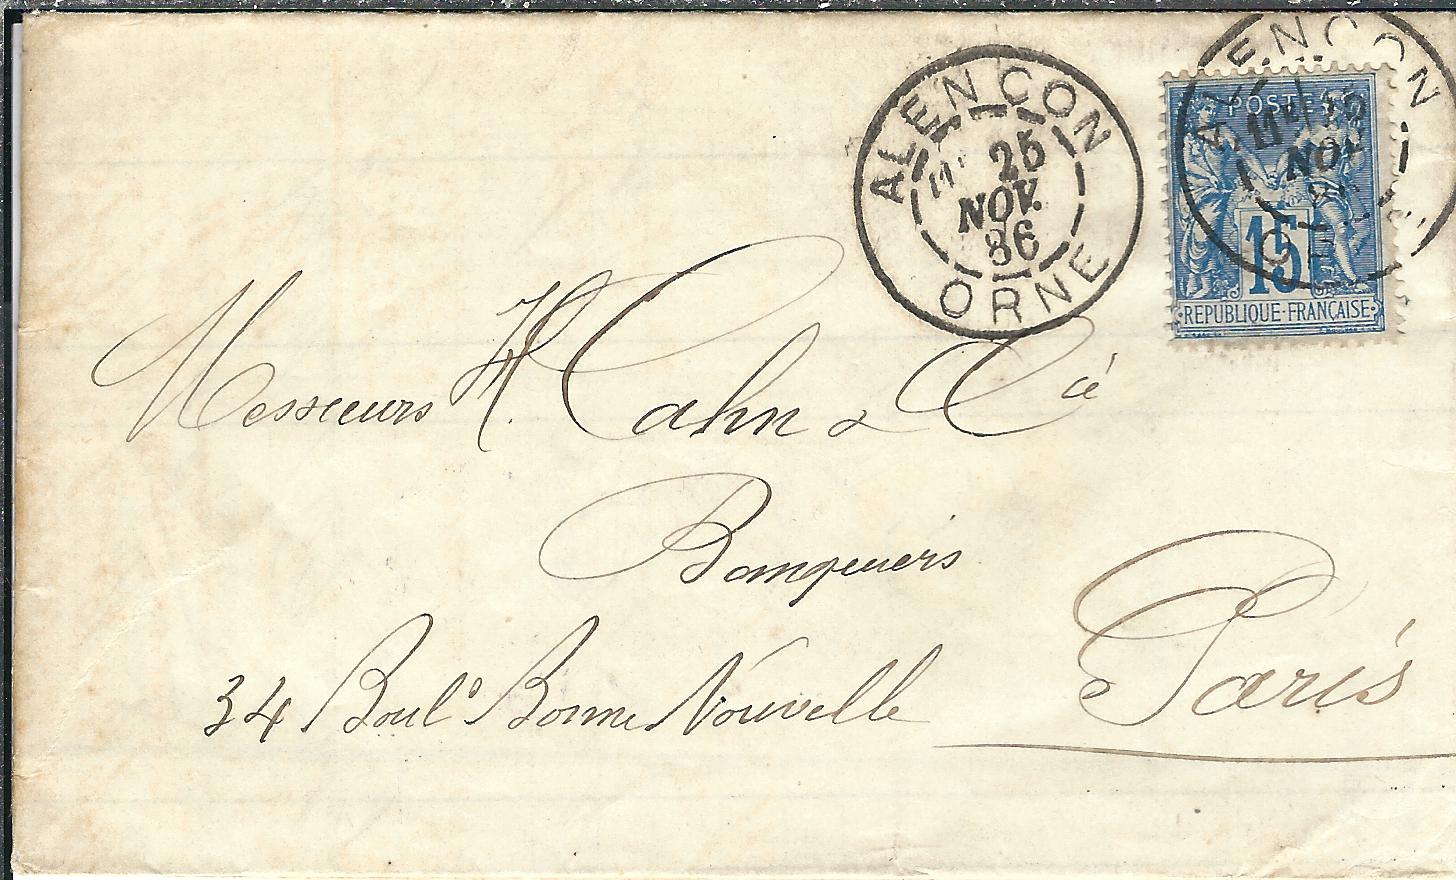 ALENÇON
25
NOV.
86
ORNE
ALENÇON
NOV
POSTES
15
REPUBLIQUE·FRANÇAISE
Messieurs H. Cahn & Cie
Banquiers
34 Boul.d Bonne Nouvelle
Paris